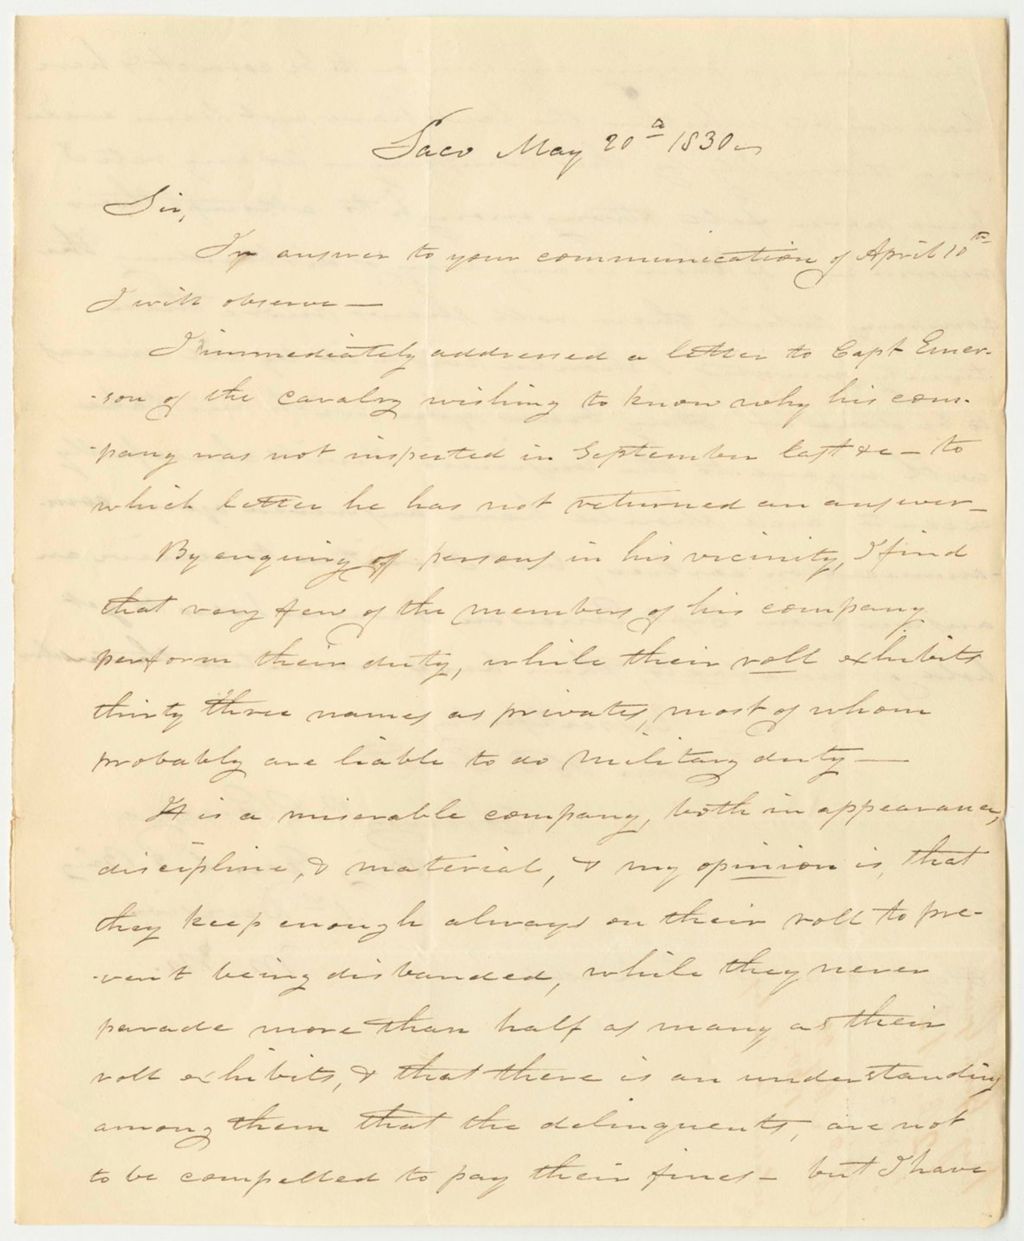 Saco May 20th 1830
Sir,
In answer to your communication of April 10th
I will observe —
I immediately addressed a letter to Capt Emer-
-son of the Cavalry wishing to know why his com-
-pany was not inspected in September last &c — to
which letter he has not returned an answer —
By enquiring of persons in his vicinity, I find
that very few of the members of his company
perform their duty, while their roll exhibits
thirty three names as privates, most of whom
probably are liable to do military duty —
It is a miserable company, both in appearance,
discipline, & material, & my opinion is, that
they keep enough always on their roll to pre-
-vent being disbanded, while they never
parade more than half as many as their
roll exhibits, & that there is an understanding
among them that the delinquents, are not
to be compelled to pay their fines — but I have